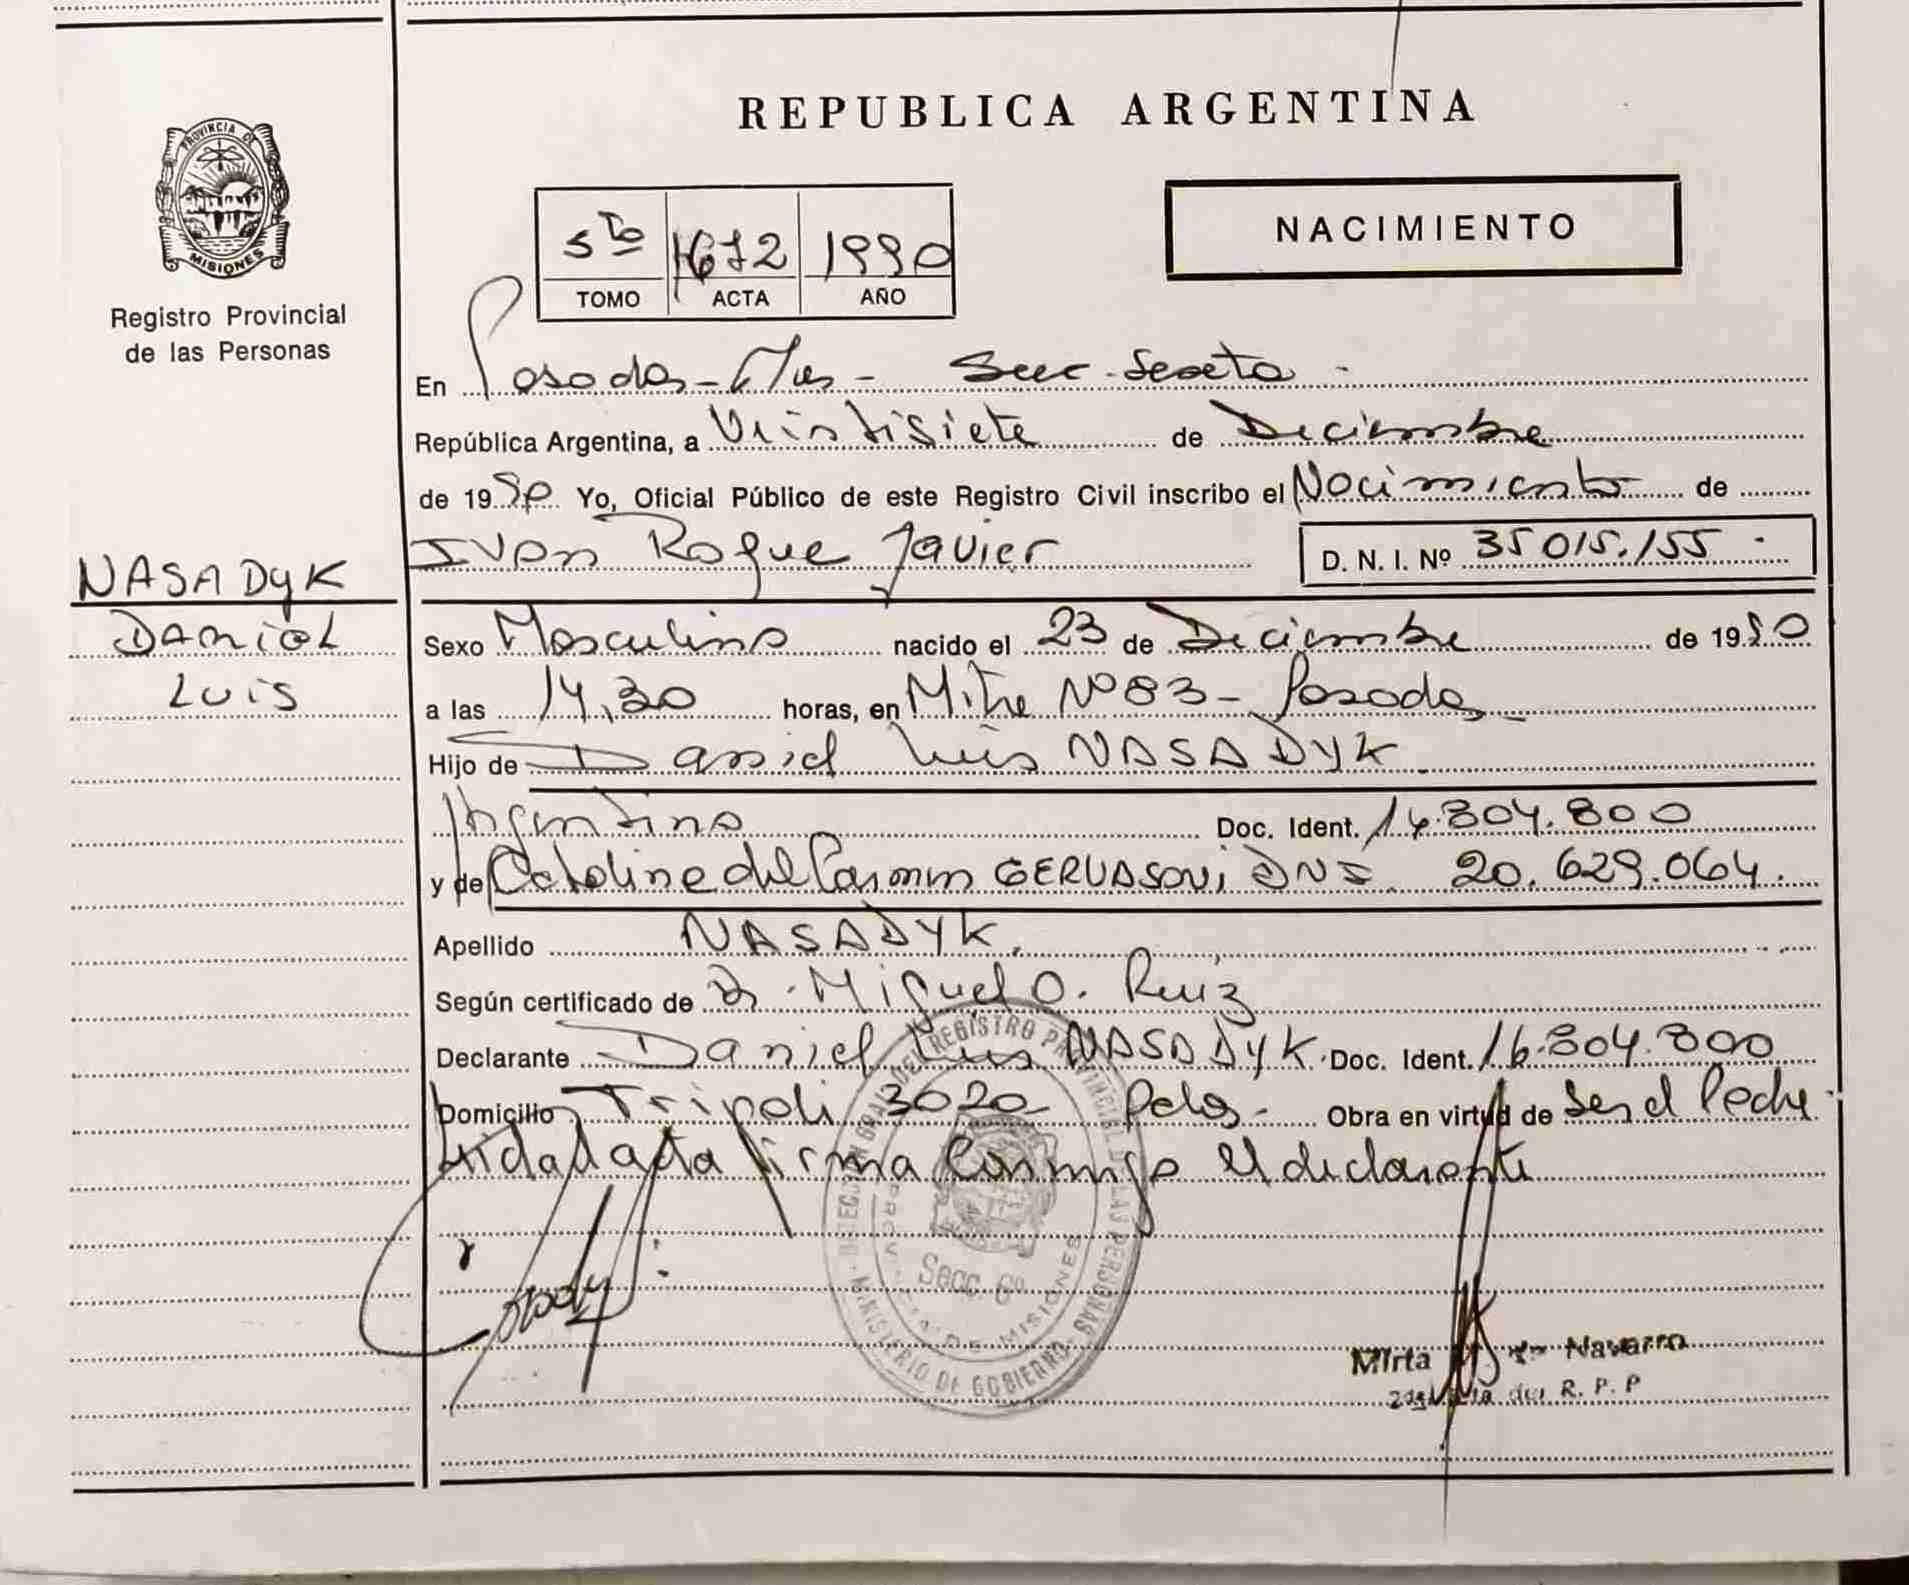 REPUBLICA ARGENTINA
PROVINCIA DE
MISIONES
Registro Provincial
de las Personas
NACIMIENTO
5to 1672 1990
TOMO ACTA AÑO
En Posadas - Mnes - Secc. Sexta -
República Argentina, a Veintisiete de Diciembre
de 1990 Yo, Oficial Público de este Registro Civil inscribo el Nacimiento de
Ivan Roque Javier D. N. I. Nº 35 015.155
NASADYK
DANIEL
LUIS
Sexo Masculino nacido el 23 de Diciembre de 1990
a las 14,30 horas, en Mitre Nº 83 - Posadas
Hijo de Daniel Luis NASADYK
Argentino Doc. Ident. 804.800
y de del Carmen GERVASONI DNI 20.629.064.
Apellido NASADYK.
Según certificado de Dr. Miguel O. Ruiz
Declarante Daniel Luis NASADYK. Doc. Ident. 16.804.800
Domicilio Tripoli 3020 Pdas - Obra en virtud de ser el Padre
Leida el acta firma conmigo el declarante
DIRECCION GRAL. DEL REGISTRO PROVINCIAL DE LAS PERSONAS
MINISTERIO DE GOBIERNO
PROVINCIA DE MISIONES
Secc. 6º
Mirta Navarro
R. P. P